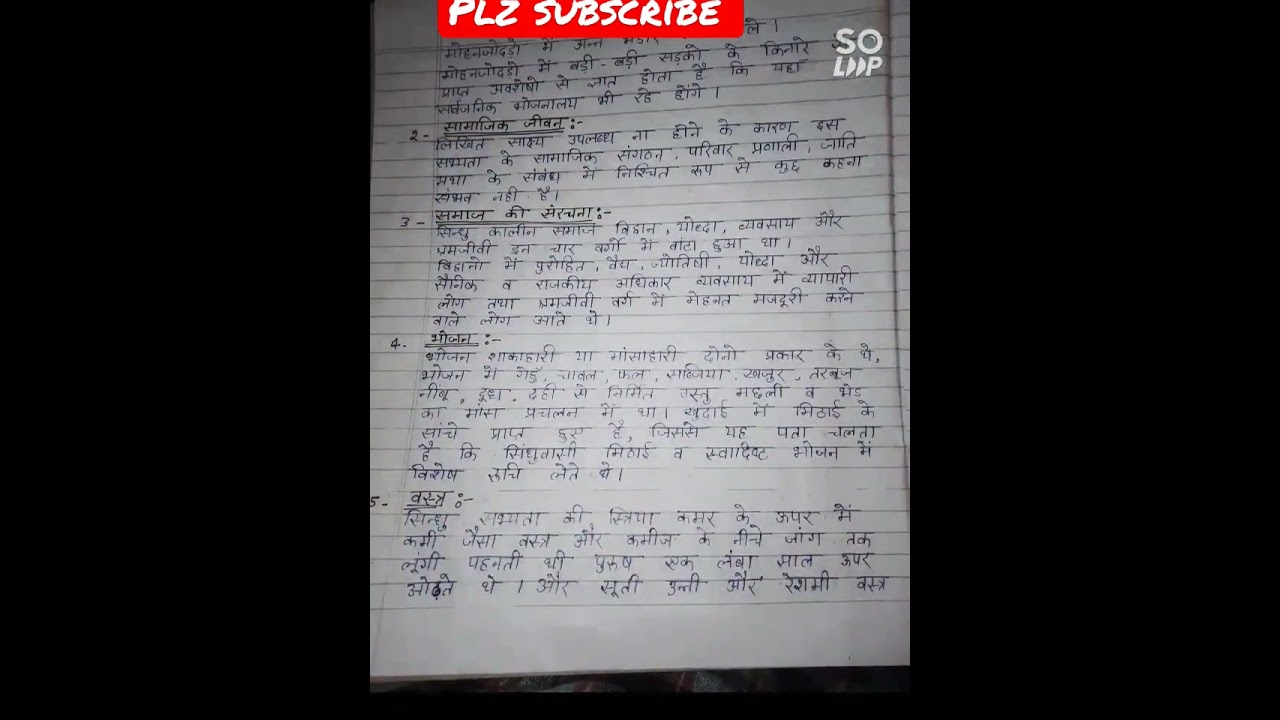 PLZ SUBSCRIBE
SO
LOOP
मोहनजोदड़ो में अन्न भंडार ले ।
मोहनजोदड़ो में बड़ी-बड़ी सड़को के किनारे
प्राप्त अवशेषो से ज्ञात होता है कि यहाँ
सर्वजनिक भोजनालय भी रहे होंगे ।
2- सामाजिक जीवन:-
लिखित साक्ष्य उपलब्ध ना होने के कारण इस
सभ्यता के सामाजिक संगठन, परिवार प्रणाली, जाति
प्रथा के संबंध में निश्चित रूप से कुछ कहना
संभव नही है।
3- समाज की संरचना:-
सिन्धु कालीन समाज विद्वान, योध्दा, व्यवसाय और
श्रमजीवी इन चार वर्गो में बांटा हुआ था ।
विद्वानो में पुरोहित, वैद्य, ज्योतिषी, योध्दा और
सैनिक व राजकीय अधिकार व्यवसाय में व्यापारी
लोग तथा श्रमजीवी वर्ग में मेहनत मजदूरी करने
वाले लोग आते थे ।
4- भोजन:-
भोजन शाकाहारी या मांसाहारी दोनो प्रकार के थे,
भोजन में गेहूँ, चावल, फल, सब्जिया, खजुर, तरबूज
नींबू, दूध, दही से निर्मित वस्तु मछली व भेड
का मांस प्रचलन में था। खुदाई में मिठाई के
सांचे प्राप्त हुए है, जिससे यह पता चलता
है कि सिंधुवासी मिठाई व स्वादिष्ट भोजन में
विशेष रूचि लेते थे।
5- वस्त्र:-
सिन्धु सभ्यता की स्त्रिया कमर के ऊपर में
कमी जैसा वस्त्र और कमीज के नीचे जांग तक
लूंगी पहनती थी पुरुष एक लंबा साल ऊपर
ओढ़ते थे । और सूती उन्नी और रेशमी वस्त्र